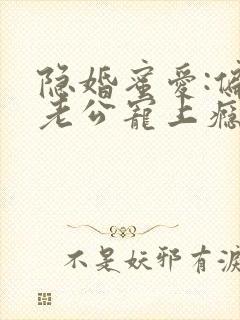 隐婚蜜爱:偏
老公宠上瘾
不是妖邪有泪